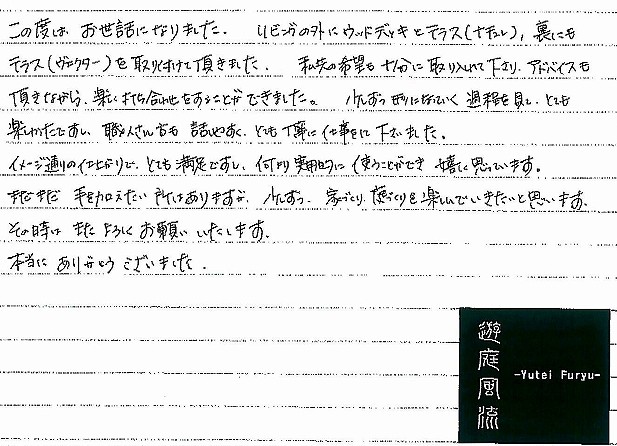 この度は、お世話になりました。 リビングの外にウッドデッキとテラス(ナチュレ)、裏にも
テラス(ヴェクター)を取り付けて頂きました。 私共の希望も十分に取り入れて下さり、アドバイスも
頂きながら、楽しく打ち合わせをすることができました。 少しずつ形になっていく過程を見て、とても
楽しかたですし、職人さん方も話しやすく、とても丁寧に仕事をして下さいました。
イメージ通りの仕上がりで、とても満足ですし、何より実用的に使うことができ嬉しく思っています。
まだまだ手を加えたい所はありますが、少しずつ、家づくり、庭づくりを楽しんでいきたいと思います。
その時は またよろしくお願いいたします。
本当に ありがとうございました。
遊庭風流
-Yutei Furyu-